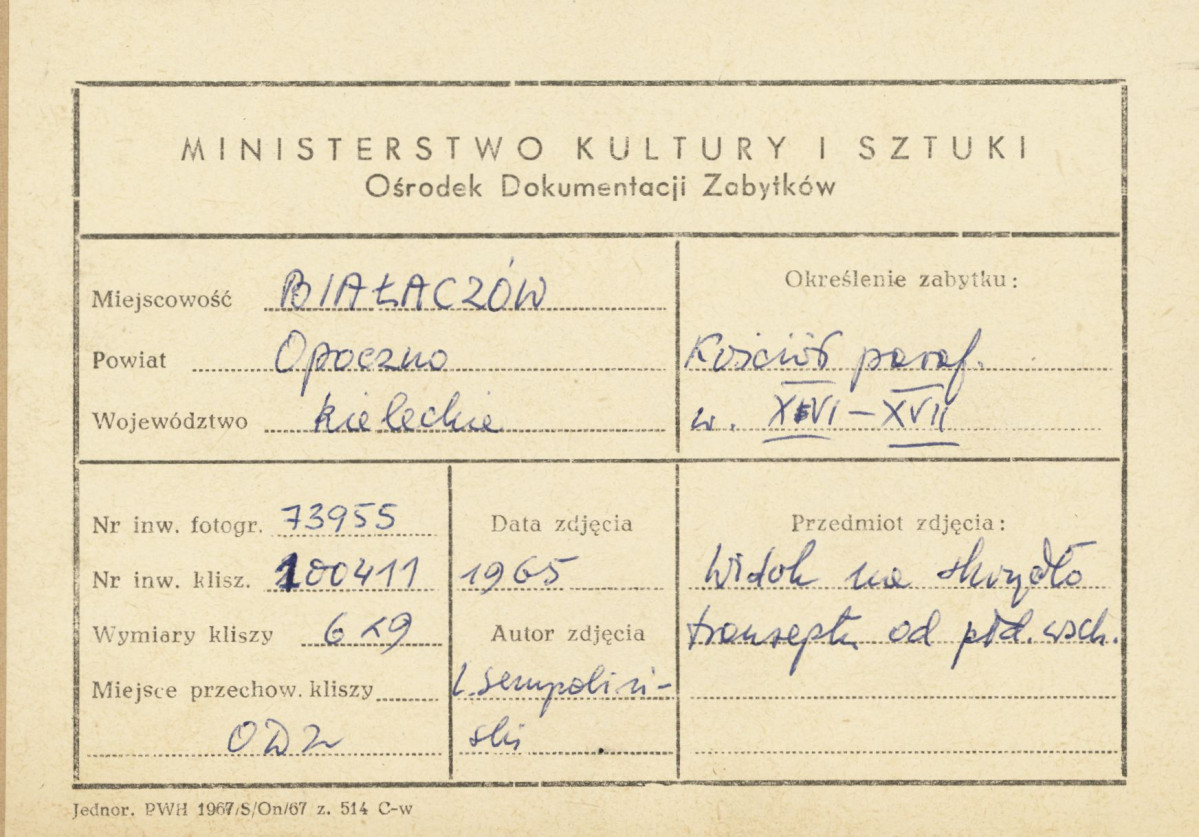 MINISTERSTWO KULTURY I SZTUKI
Ośrodek Dokumentacji Zabytków
Miejscowość BIAŁACZÓW
Powiat Opoczno
Województwo kieleckie
Określenie zabytku:
Kościół paraf.
w. XVI – XVII
Nr inw. fotogr. 73955
Nr inw. klisz. 100411
Wymiary kliszy 6x9
Miejsce przechow. kliszy
ODZ
Data zdjęcia
1965
Autor zdjęcia
L. Sempoliń-
ski
Przedmiot zdjęcia:
Widok na skrzydło
transeptu od płd. wsch.
Jednor. PWH 1967/S/On/67 z. 514 C-w